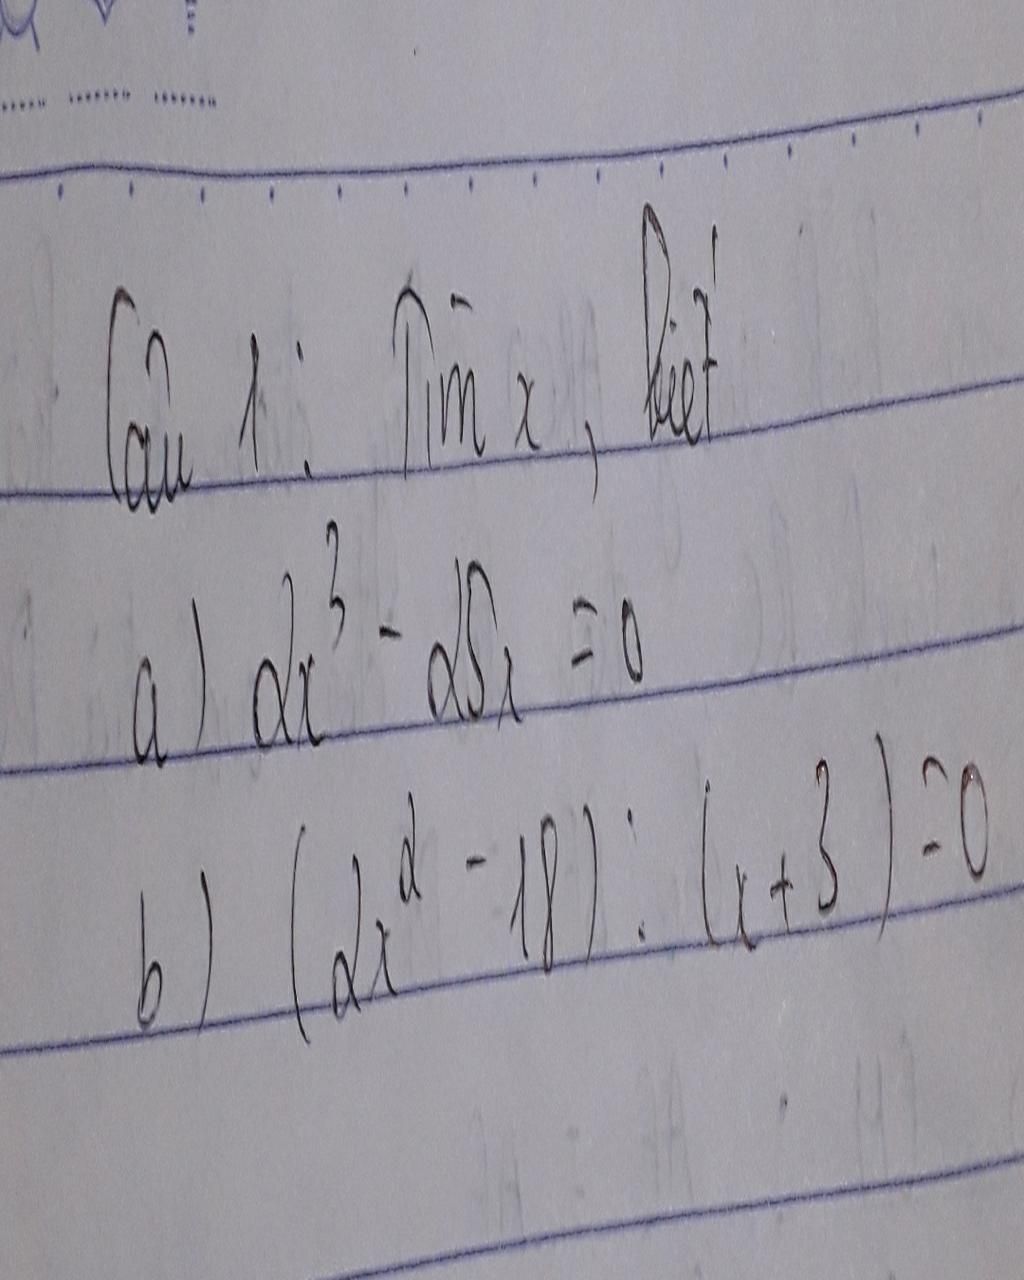 Câu 1: Tìm x, biết
a) 2x³ - 25x = 0
b) (2x² - 18) : (x + 3) = 0